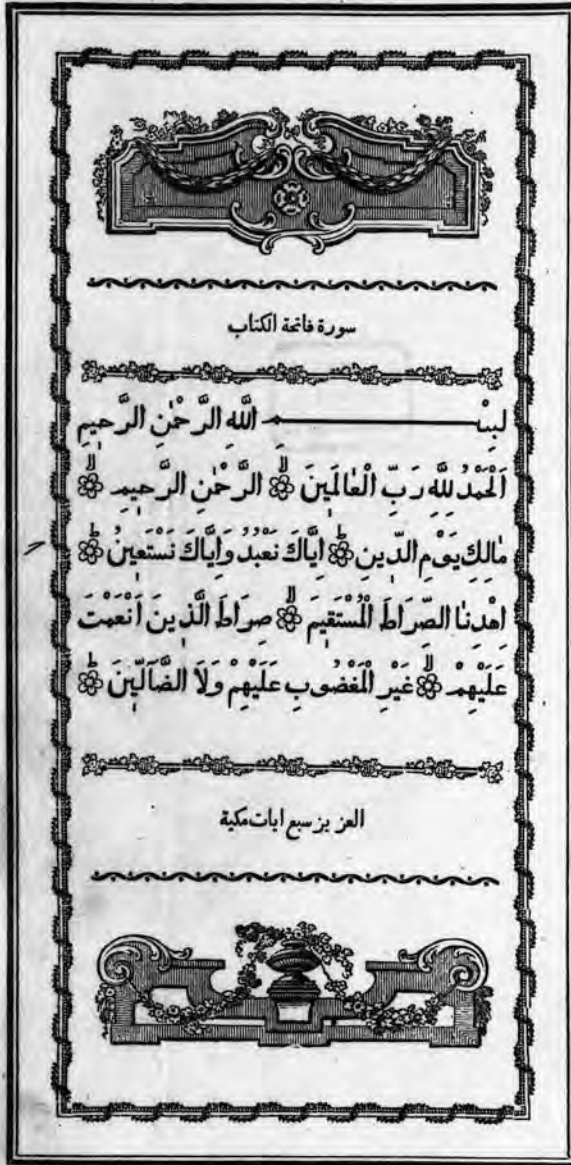 سورة فاتحة الكتاب
بِسْــــــــمِ اللّٰهِ الرَّحْمٰنِ الرَّحِيمِ
اَلْحَمْدُ لِلّٰهِ رَبِّ الْعٰالَمِينَ ۞ الرَّحْمٰنِ الرَّحِيمِ ۞
مٰالِكِ يَوْمِ الدِّينِ ۞ اِيَّاكَ نَعْبُدُ وَاِيَّاكَ نَسْتَعِينُ ۞
اِهْدِنَا الصِّرَاطَ الْمُسْتَقِيمَ ۞ صِرَاطَ الَّذِينَ اَنْعَمْتَ
عَلَيْهِمْ ۞ غَيْرِ الْمَغْضُوبِ عَلَيْهِمْ وَلَا الضَّآلِّينَ ۞
العزيز سبع ايات مكية